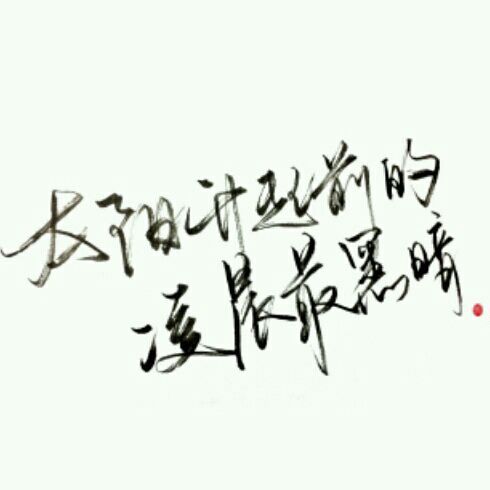 太阳升起前的
凌晨最黑暗